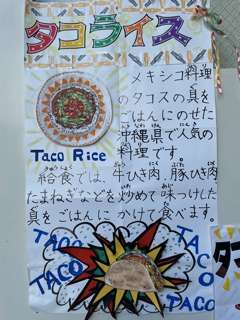 タコライス
メキシコ料理
のタコスの具を
ごはんにのせた
沖縄県で人気の
料理です。
Taco Rice
給食では、牛ひき肉、豚ひき肉、
たまねぎなどを炒めて味つけした
具をごはんにかけて食べます。
TACO
TACO
TACO
TACO
TACO